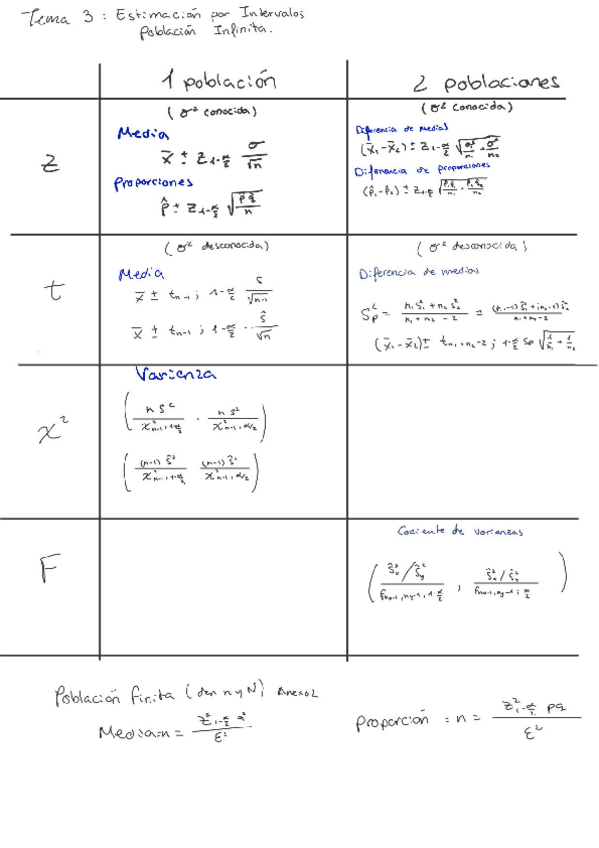 Tema 3 : Estimación por Intervalos
Población Infinita.
1 población
2 poblaciones
Z
(σ² conocida)
Media
x̄ ± z₁₋α/₂ σ/√n
Proporciones
p̂ ± z₁₋α/₂ √(p̂ q̂/n)
(σ² conocida)
Diferencia de medias
(x̄₁-x̄₂) ± z₁₋α/₂ √(σ²/n₁ + σ²/n₂)
Diferencia de proporciones
(p̂₁-p̂₂) ± z₁₋α/₂ √(p̂₁q̂₁/n₁ + p̂₂q̂₂/n₂)
t
(σ² desconocida)
Media
x̄ ± tₙ₋₁; 1-α/2 S/√(n-1)
x̄ ± tₙ₋₁; 1-α/2 · Ŝ/√n
(σ² desconocida)
Diferencia de medias
Sp² = (n₁S₁² + n₂S₂²)/(n₁+n₂-2) = ((n₁-1)Ŝ₁²+(n₂-1)Ŝ₂²)/(n₁+n₂-2)
(x̄₁-x̄₂) ± t n₁+n₂-2; 1-α/2 Sp √(1/n₁ + 1/n₂)
χ²
Varianza
(nS²/χ²ₙ₋₁,₁₋α/₂ , nS²/χ²ₙ₋₁,α/₂)
((n-1)Ŝ²/χ²ₙ₋₁,₁₋α/₂ (n-1)Ŝ²/χ²ₙ₋₁,α/₂)
F
Cociente de varianzas
(Ŝx²/Ŝy² / F nx-1,ny-1,1-α/2 , Ŝx²/Ŝy² / F nx-1,ny-1; α/2)
Población finita (dan n y N) Anexo 2
Media=n= z²₁₋α/₂ σ²/ε²
Proporción = n = z²₁₋α/₂ pq/ε²